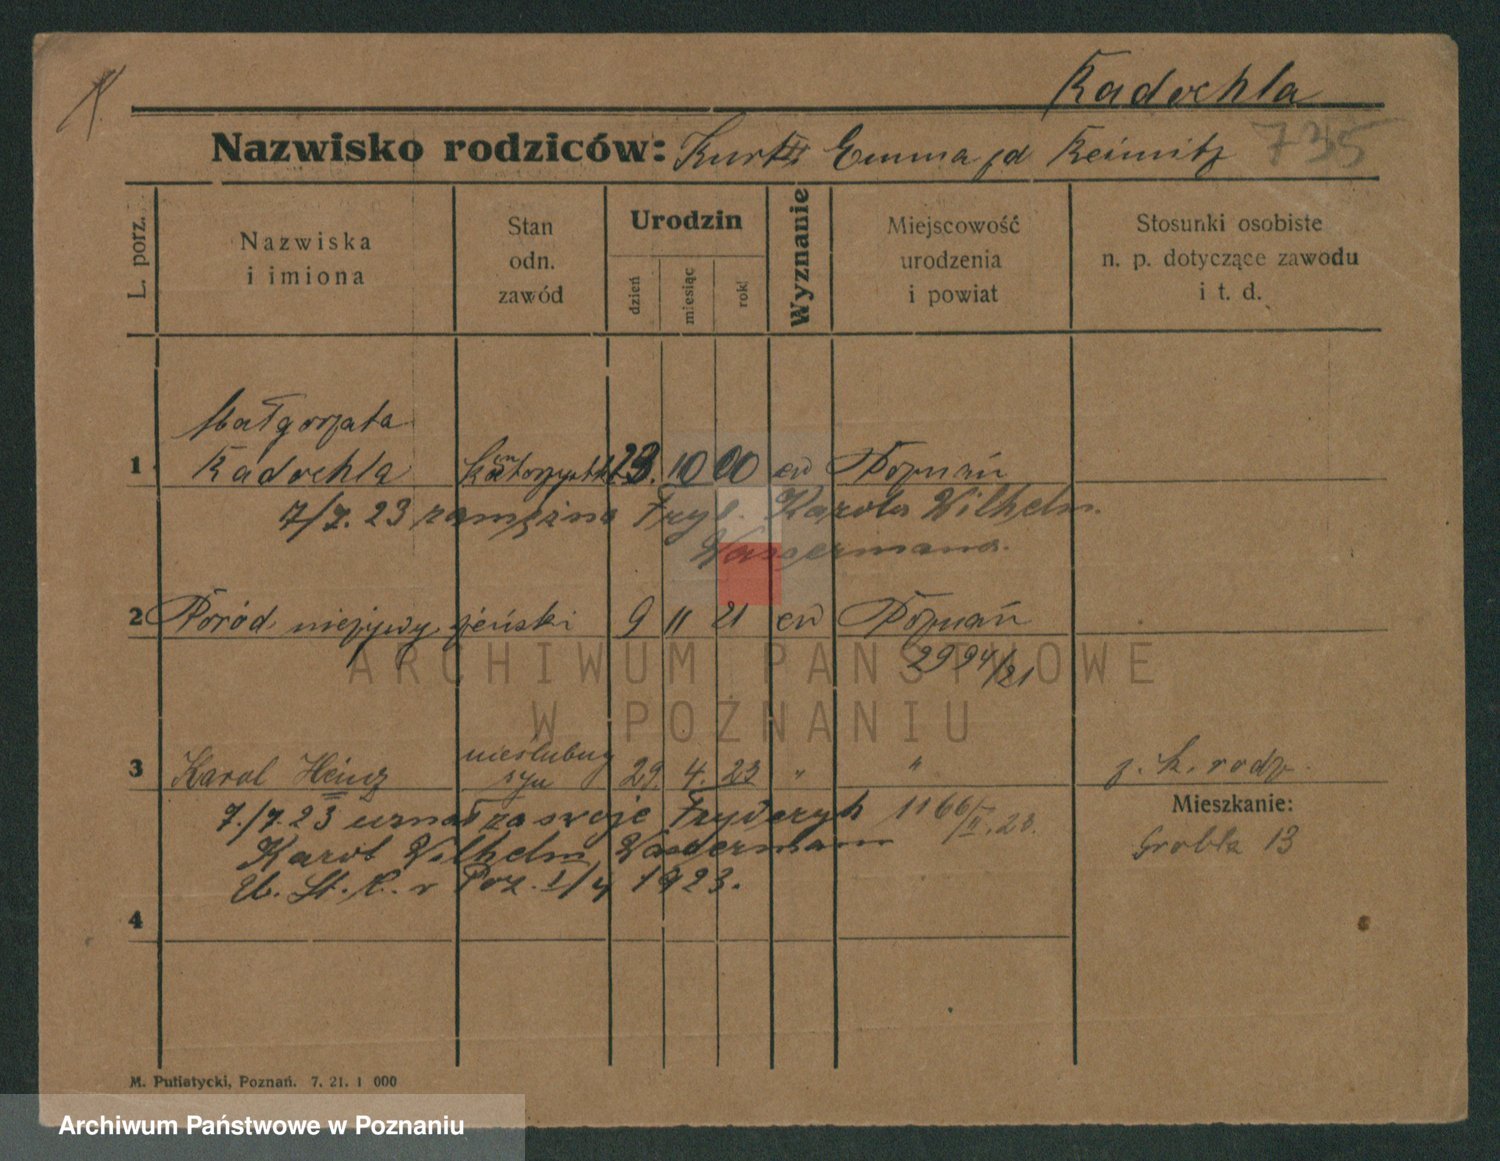 Radochla
Nazwisko rodziców: Kurt Emma zd Reimitz 735
L. porz.
Nazwiska
i imiona
Stan
odn.
zawód
Urodzin
dzień
miesiąc
rok
Wyznanie
Miejscowość
urodzenia
i powiat
Stosunki osobiste
n. p. dotyczące zawodu
i t. d.
Małgorzata
1 Radochla 23. 10 00 ew Poznań
7/7. 23 zamężna Fryd. Karola Wilhelm
Wassermana.
2 Poród nieżywy żeński 9 11 21 ew Poznań
2994/21
nieślubny
3 Karol Heinz syn 29. 4. 23 " " z. k. rodz.
7./7.23 uznał za swoje Fryderyk 1166
Karol Wilhelm Wassermann
U. St. C. Poz. 1923.
Mieszkanie:
Grobla 13
4
M. Putiatycki, Poznań. 7. 21. 1 000
ARCHIWUM PAŃSTWOWE
W POZNANIU
Archiwum Państwowe w Poznaniu